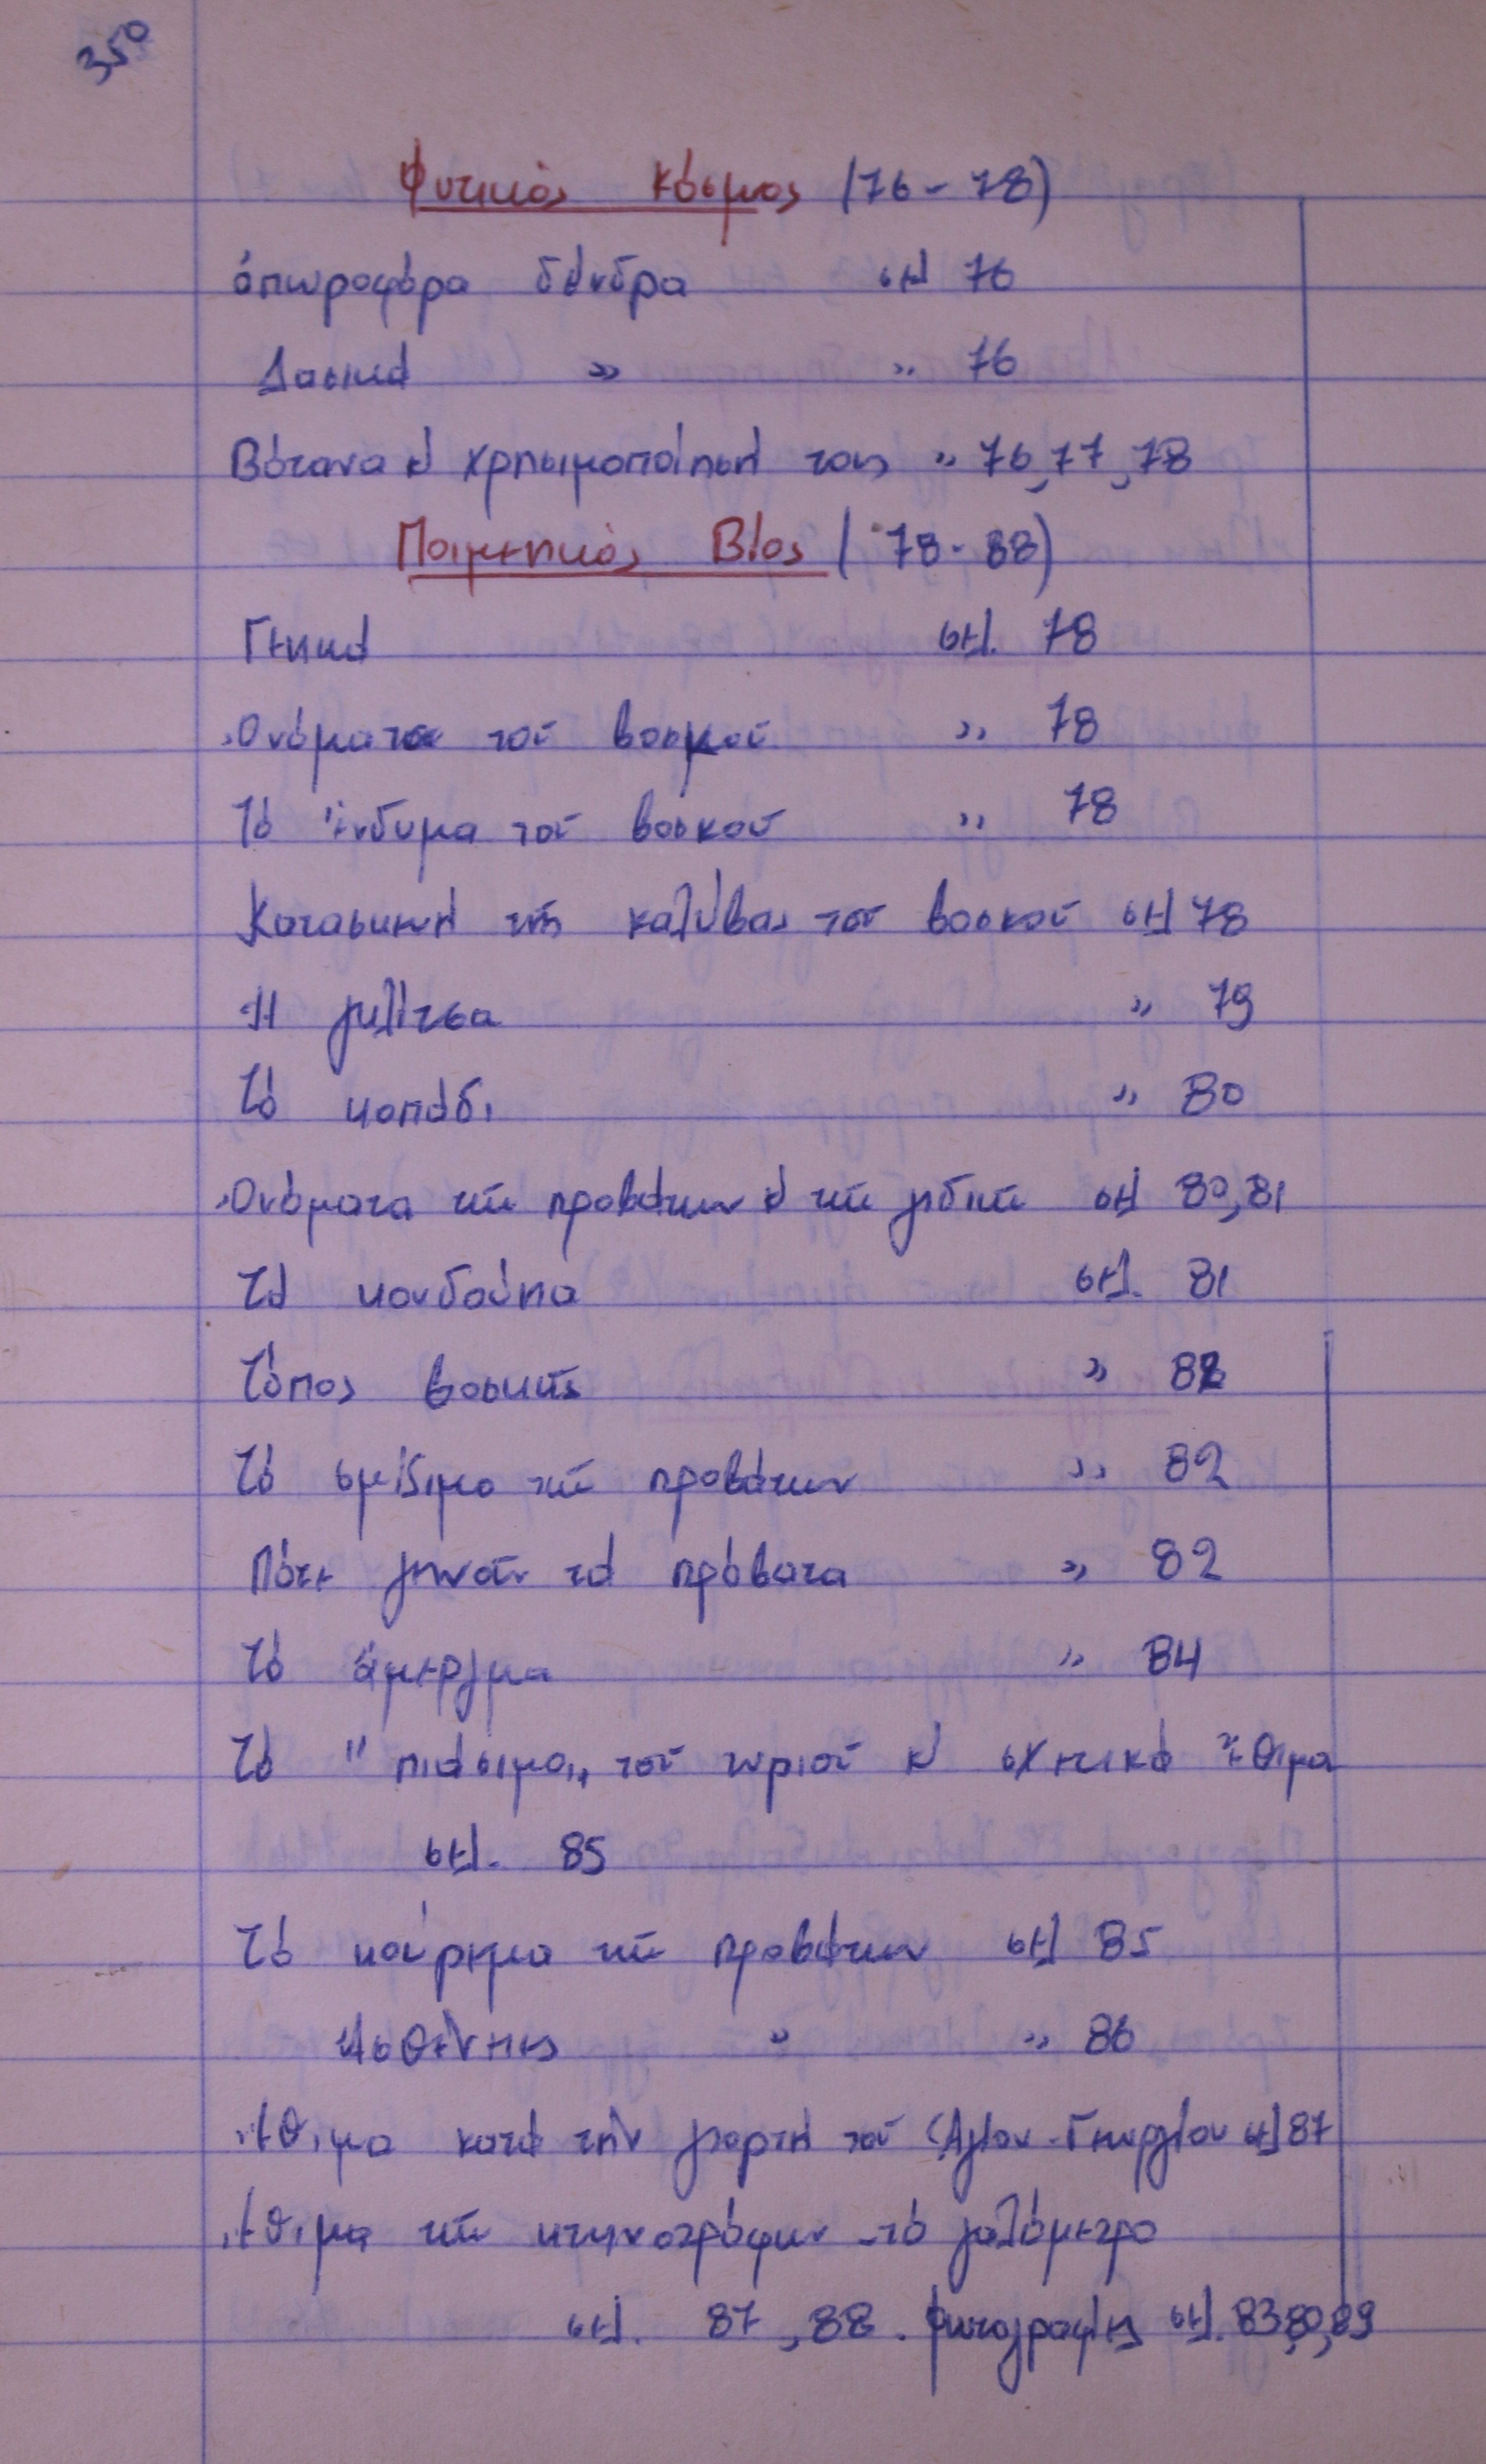 350
Φυτικός κόσμος (76-78)
ὀπωροφόρα δένδρα σελ 76
Δασικά » » 76
Βότανα κ' χρησιμοποίησή τους » 76, 77, 78
Ποιμενικός Βίος (78-88)
Γενικά σελ. 78
Ὀνόματα τοῦ βοσκοῦ » 78
Τό ἔνδυμα τοῦ βοσκοῦ » 78
Κατασκευή τῆς καλύβας τοῦ βοσκοῦ σελ 78
Ἡ γκλίτσα » 79
Τό κοπάδι » 80
Ὀνόματα τῶν προβάτων κ' τῶν γιδιῶν σελ 80,81
Τά κουδούνια σελ. 81
Τόπος βοσκῆς » 82
Τό σμίξιμο τῶν προβάτων » 82
Πότε γεννοῦν τά πρόβατα » 82
Τό ἄμεργμα » 84
Τό "πιάσιμο,, τοῦ τυριοῦ κ' σχετικά ἔθιμα
σελ. 85
Τό κούρεμα τῶν προβάτων σελ 85
Ἀσθένειες » » 86
Ἔθιμα κατά τήν γιορτή τοῦ Ἁγίου Γεωργίου σελ 87
Ἔθιμα τῶν κτηνοτρόφων - τό γαλόμετρο
σελ. 87, 88. φωτογραφίες σελ. 83,80,89